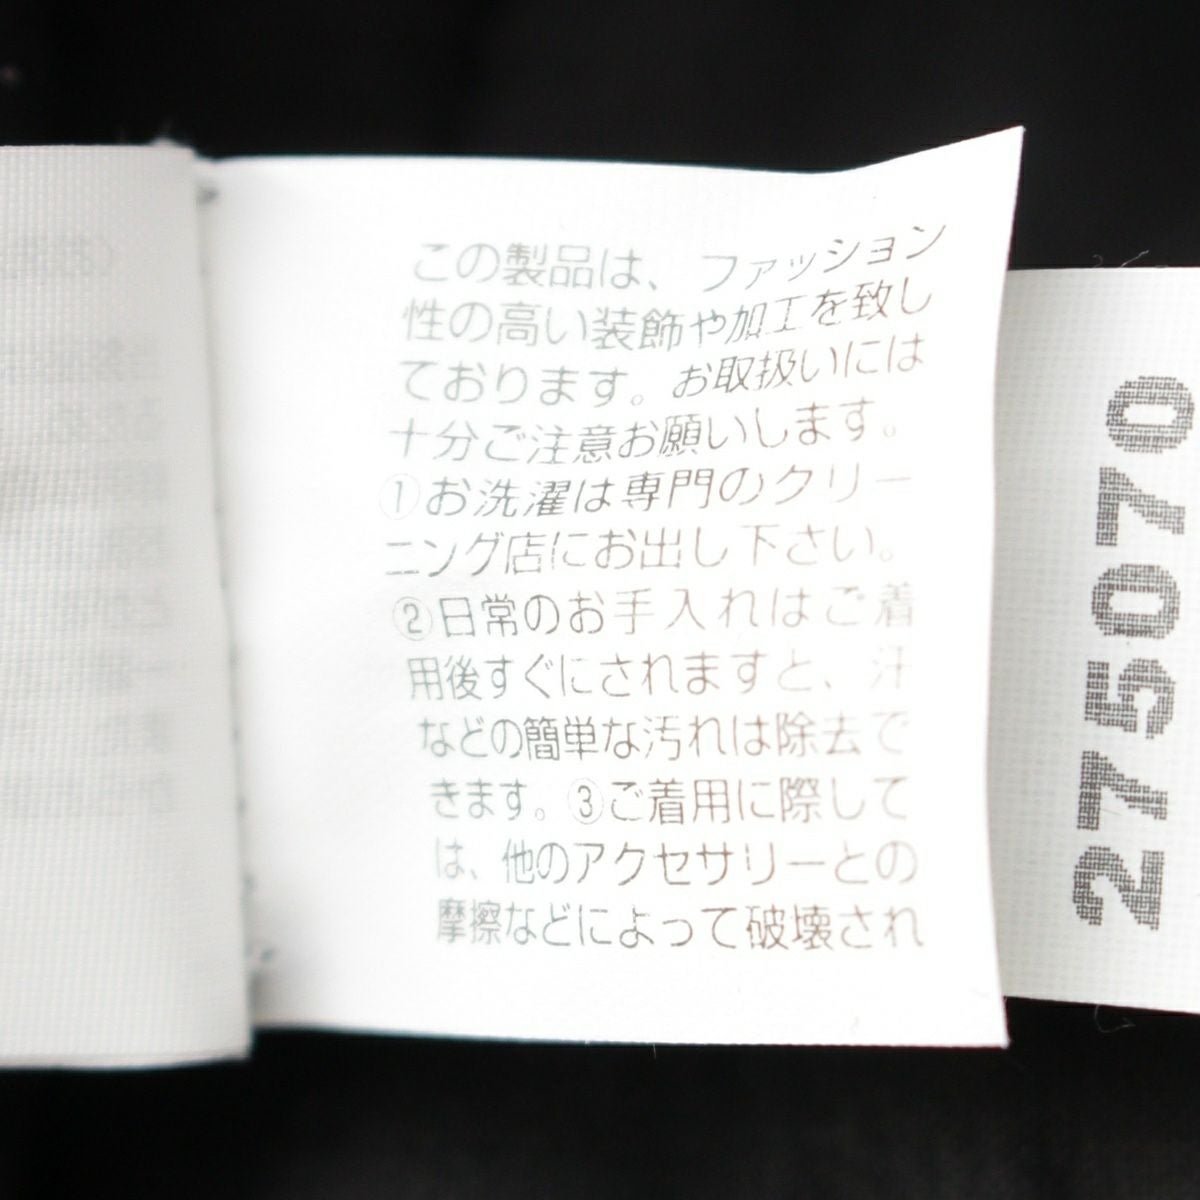 この製品は、ファッション
性の高い装飾や加工を致し
ております。お取扱いには
十分ご注意お願いします。
①お洗濯は専門のクリー
ニング店にお出し下さい。
②日常のお手入れはご着
用後すぐにされますと、汗
などの簡単な汚れは除去で
きます。③ご着用に際して
は、他のアクセサリーとの
摩擦などによって破壊され
275070